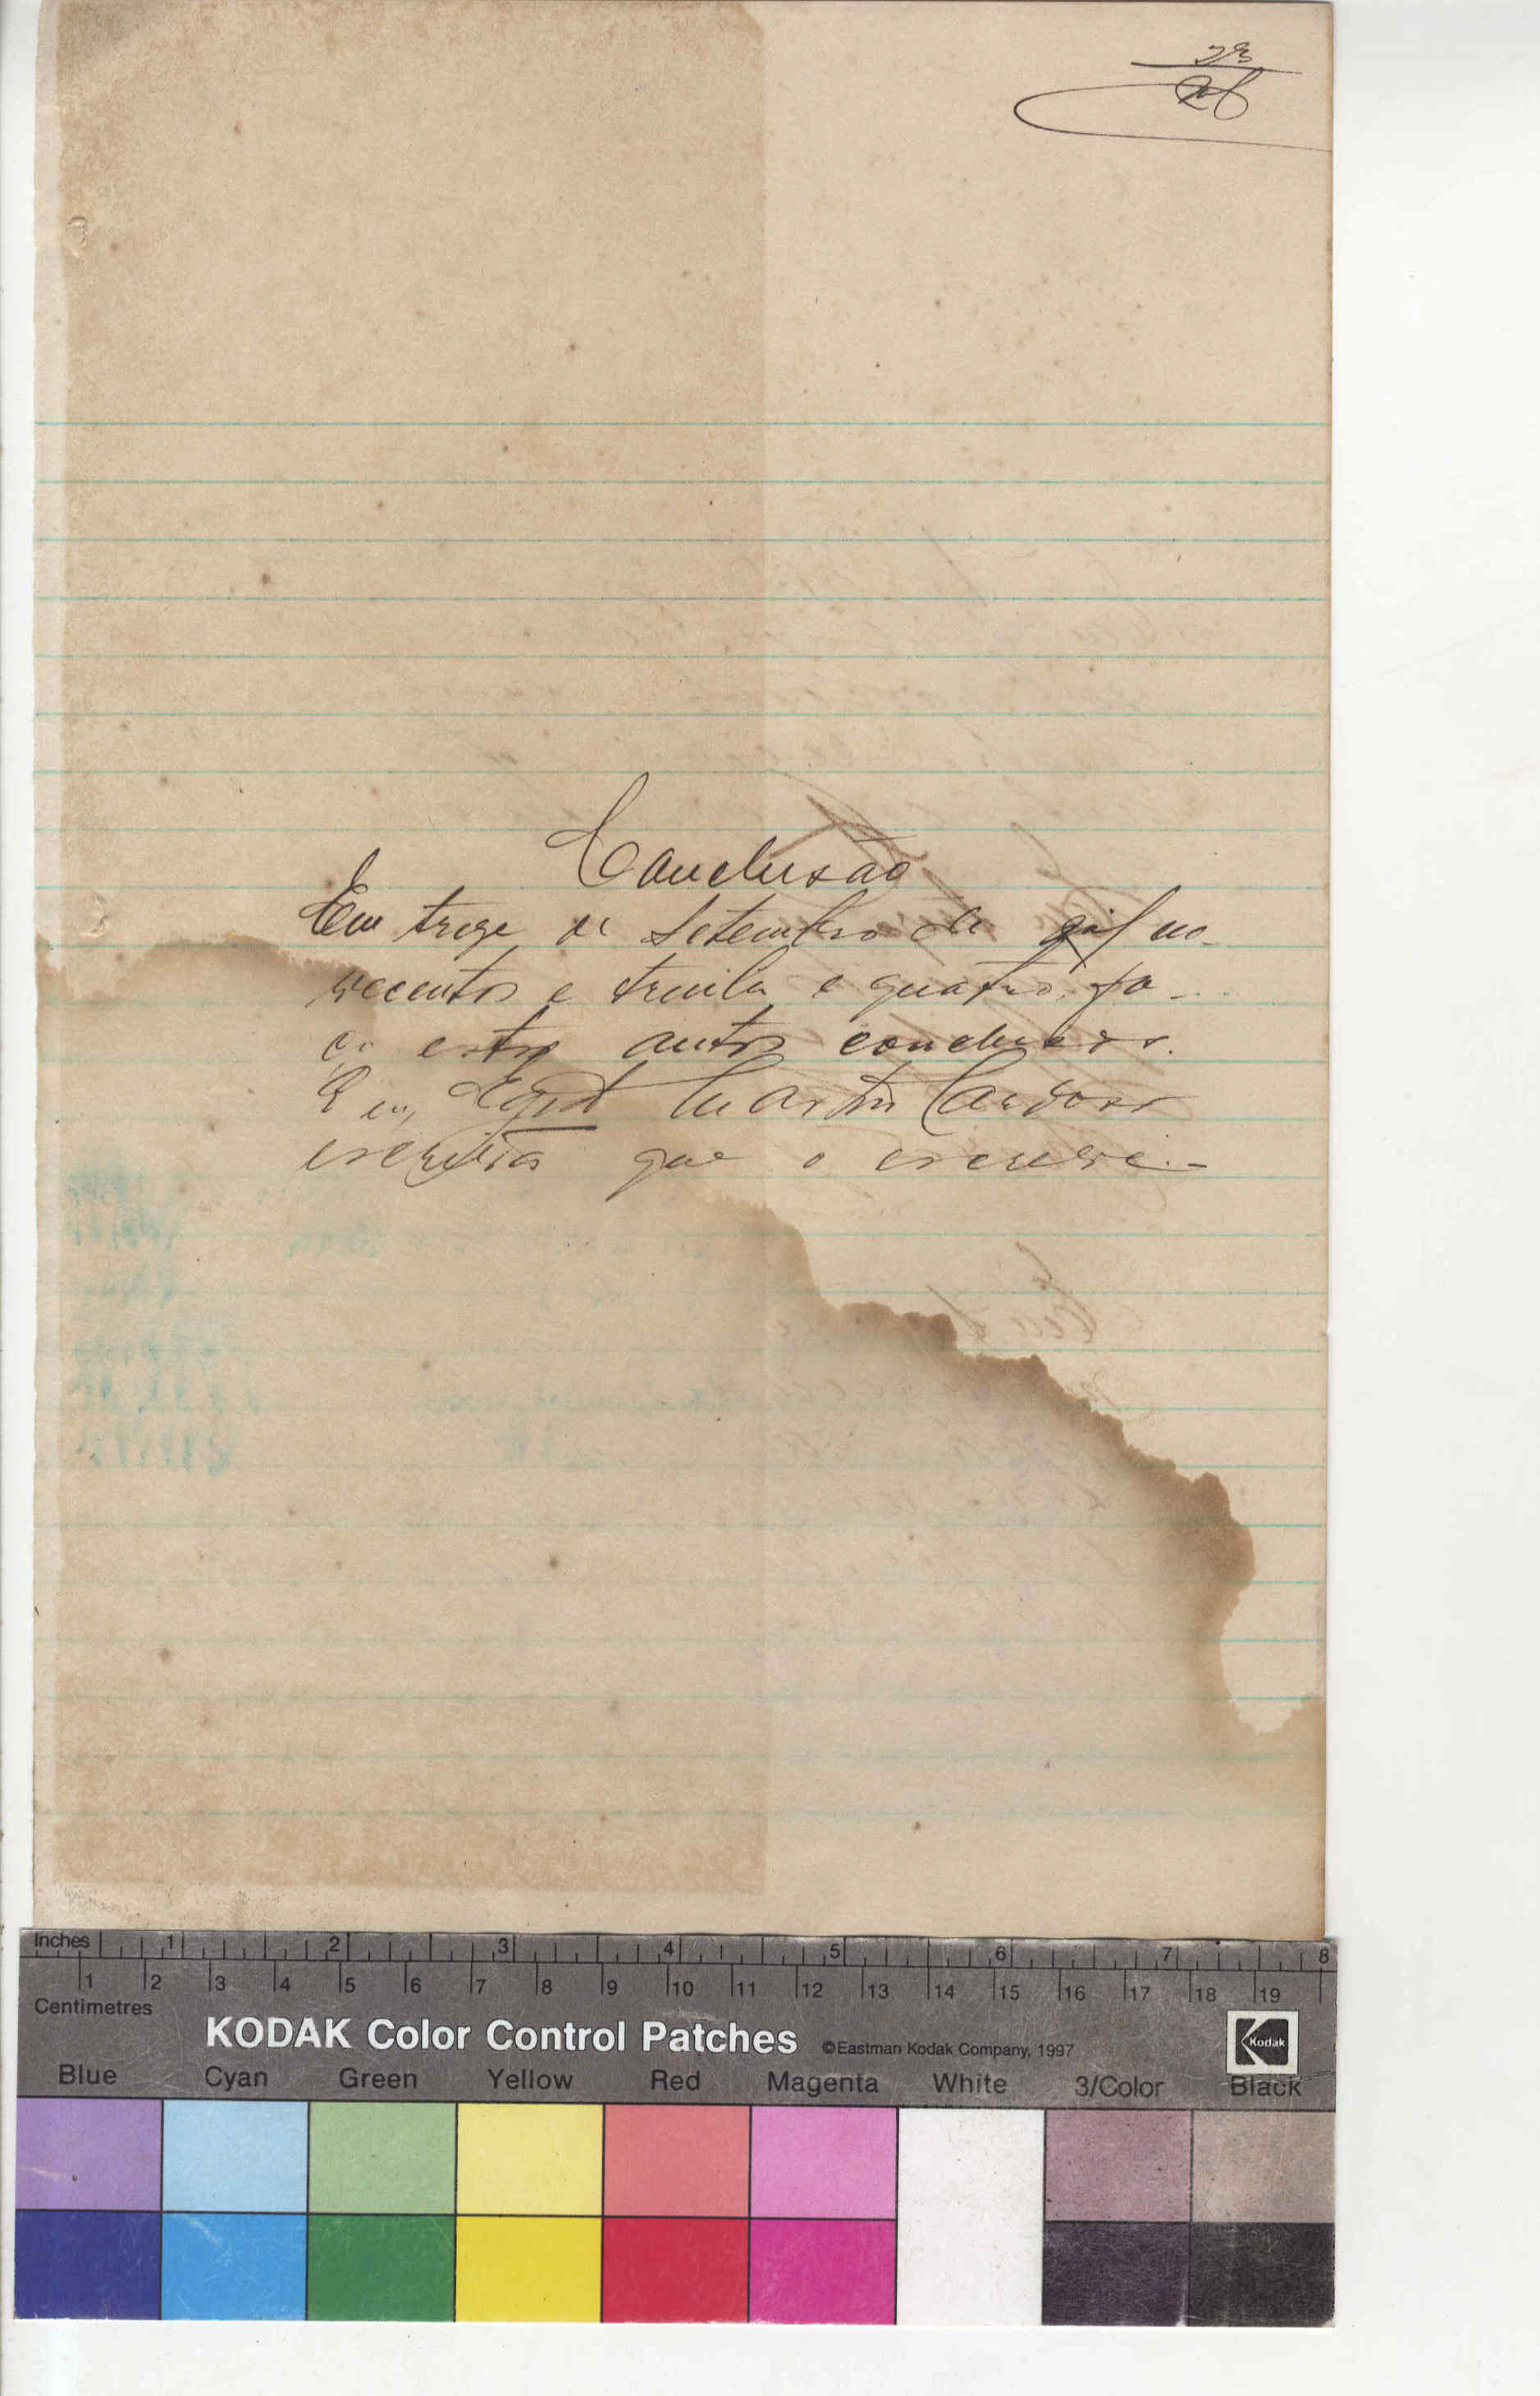 23
Conclusão
Em treze de Setembro de mil no-
vecentos e trinta e quatro, fa-
ço estes autos conclusos.
Eu, Martins Cardoso
escrivão que o escrevi.-
Inches 1 2 3 4 5 6 7 8
1 2 3 4 5 6 7 8 9 10 11 12 13 14 15 16 17 18 19
Centimetres
KODAK Color Control Patches ©Eastman Kodak Company, 1997 Kodak
Blue Cyan Green Yellow Red Magenta White 3/Color Black